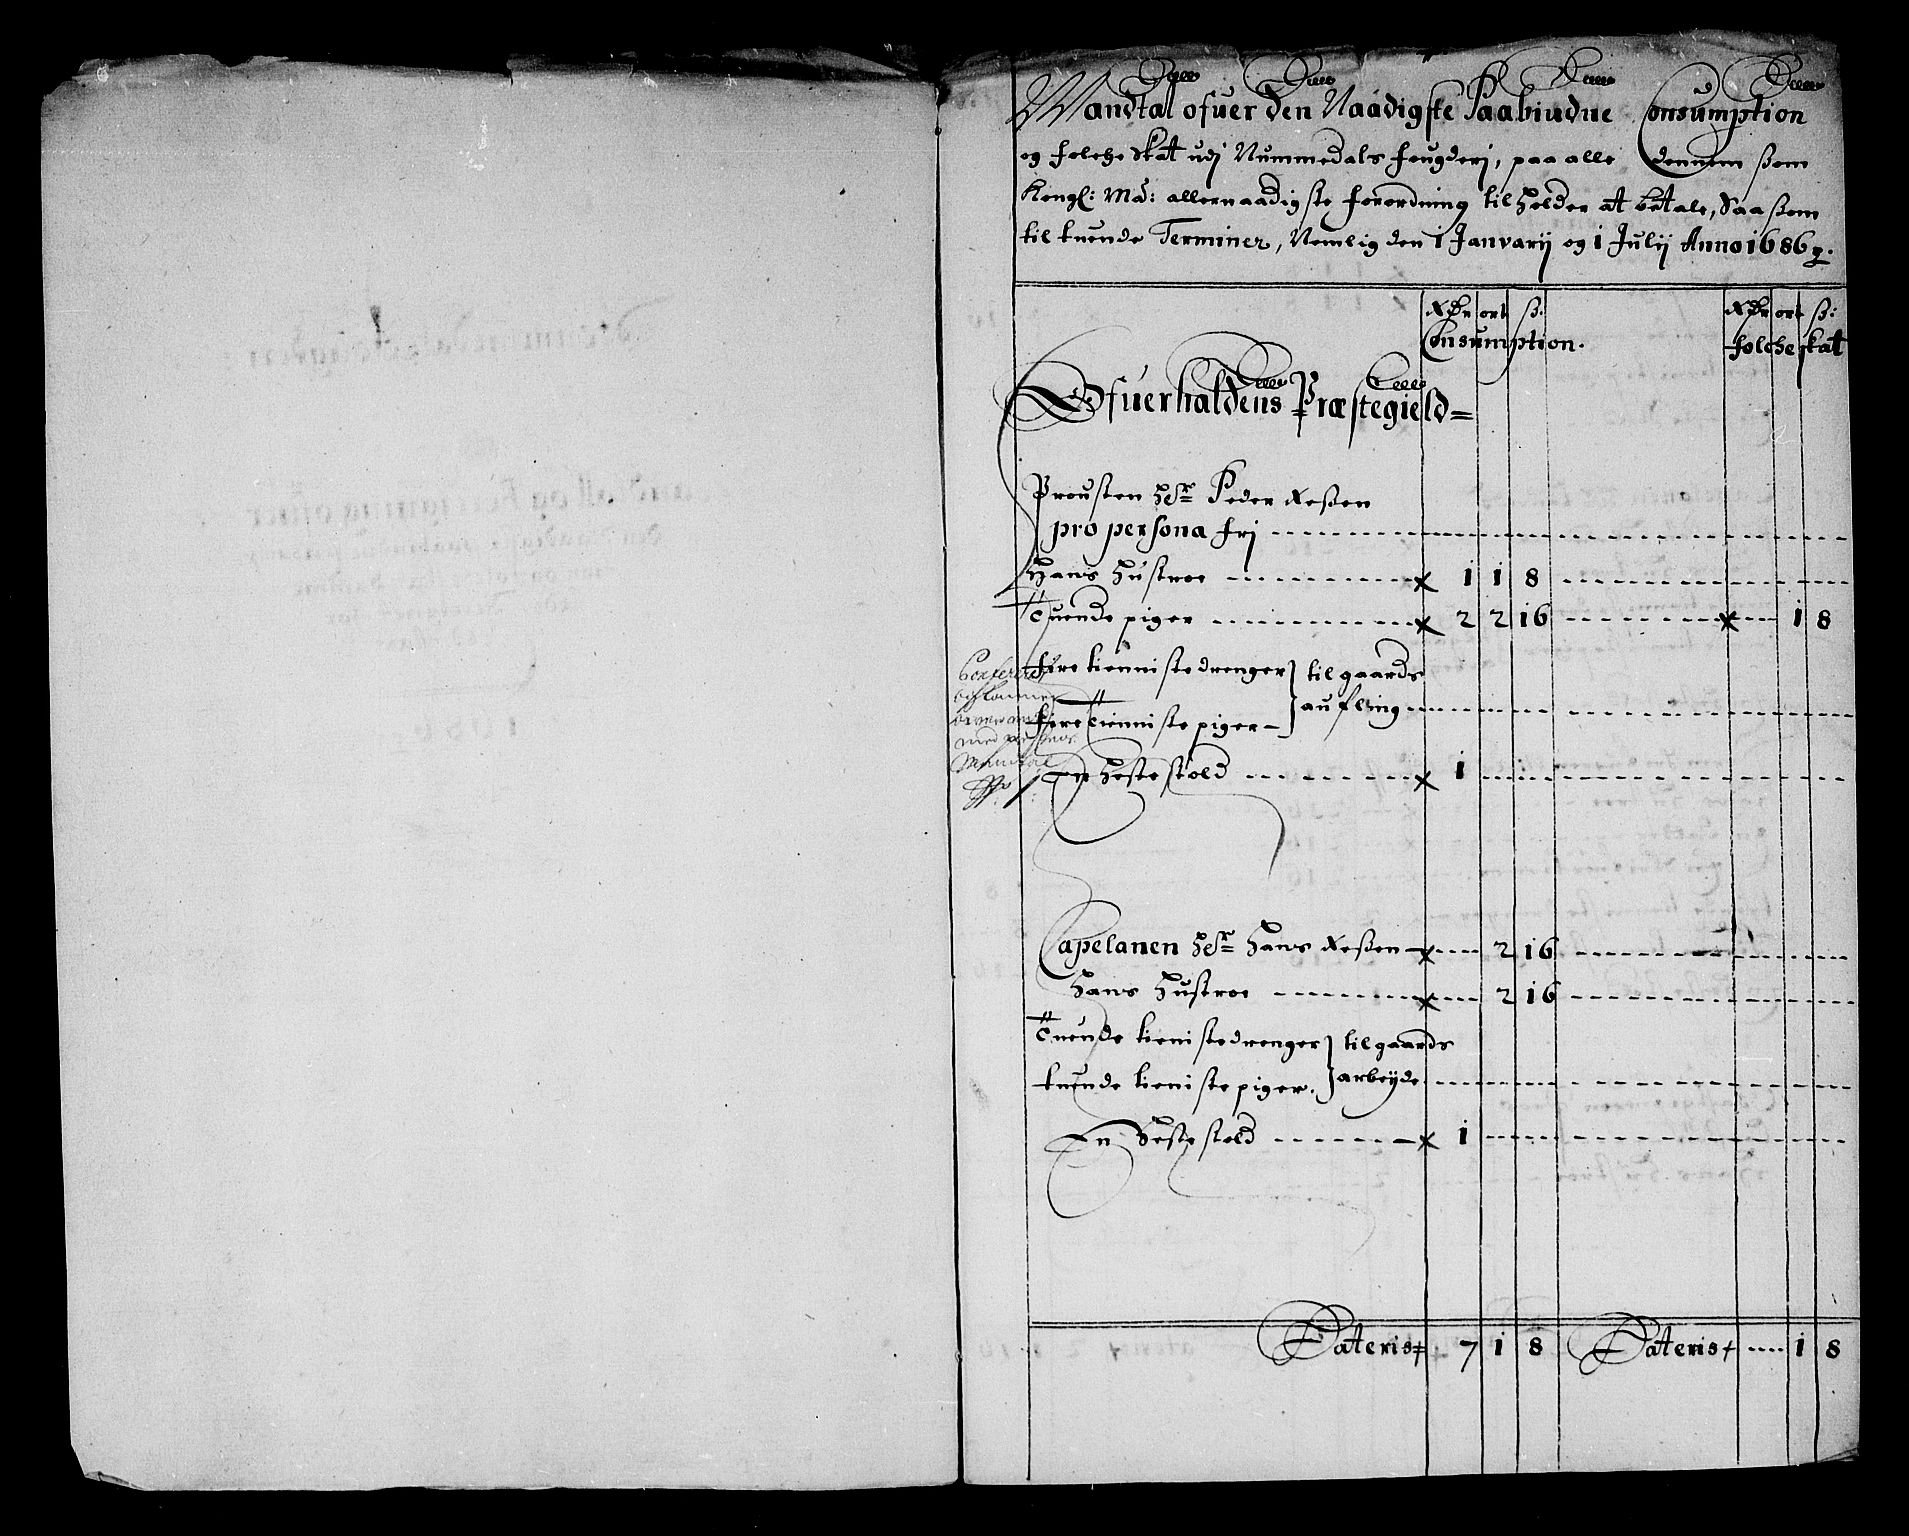 Mandtal ofuer den Naadigste Paabiudne Consumption
og folche Skat udj Nummedals fougderj, paa alle dennem ßom
Kongl: Mã: allernaadigste forordning tilholder at betale, Saaßom
til tuende Terminer, Nemlig den 1 Janvarij og 1 Julij Anno 1686
Rdr ort ß: Rdr ort ß:
Consumption. folche skat
Ofuerhaldens Præstegield =
Prousten hr Peder Neßen
pro persona frj
Hans hustroe 1 1 8
Tuende piger 2 2 16 1 8
fire tienniste drenger } til gaards
fire tienniste piger } aufling
med
Mandtal
En hestestold 1
Capelanen hr Hans Neßen 2 16
Hans hustroe 2 16
Tuende tienistedrenger } til gaards
tuende tieniste piger. } arbeyde
En hestestold 1
Lateris 7 1 8 Lateris 1 8